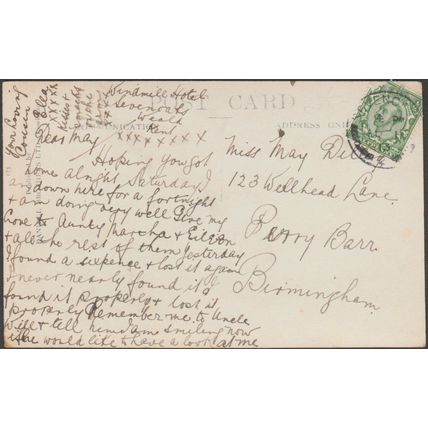 POST CARD
ADDRESS ONLY
Windmill Hotel
Sevenoaks
Weald
Kent
Dear May, xxxxxxx
Hoping you got
home alright Saturday I
am down here for a fortnight
& am doing very well Give my
Love to Aunty Martha & Eileen
& all the rest of them Yesterday
I found a sixpence & lost it again
I never nearly found it I
found it properly & lost it
properly Remember me to Uncle
Will & tell him I am smiling now
if he would like to have a look at me
Your loving
Cousin
Ella
xxxx
Kisses
Miss May
123 Wellhead Lane,
Perry Barr
Birmingham